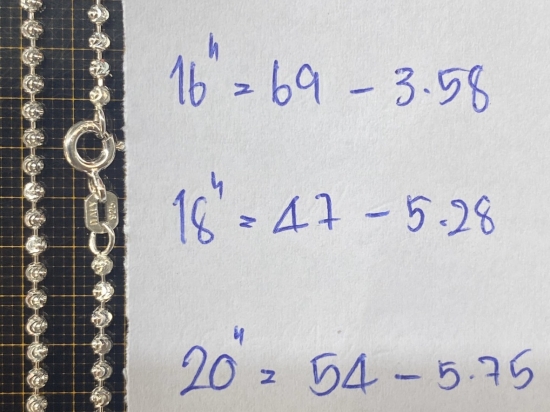 16" = 69 - 3.58
18" = 47 - 5.28
20" = 54 - 5.75
ITALY